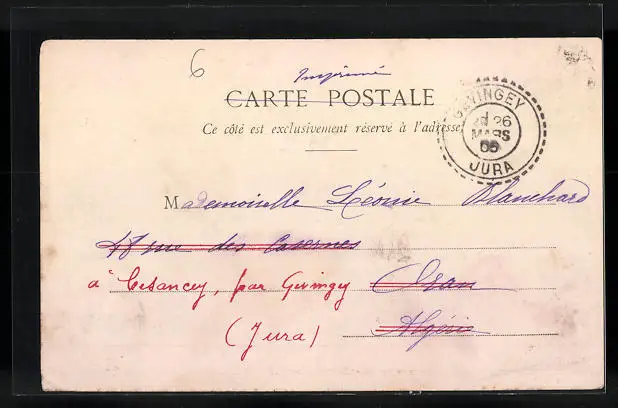 6
Imprimé
CARTE POSTALE
Ce côté est exclusivement réservé à l'adresse
GEVINGEY
26
MARS
05
JURA
Mademoiselle Léonie Blanchard
48 rue des Casernes
à Cesancey, par Gevingey Oran
(Jura) Algérie